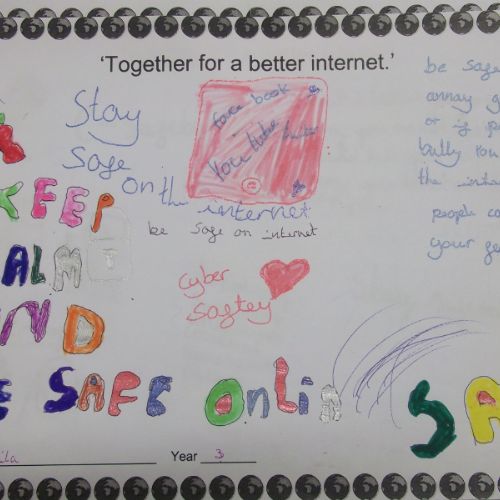 'Together for a better internet.'
Stay
Safe
on the internet
face book
You tube twitter
be safe on internet
cyber
saftey
be safe
annoy
or if
bully you
the
people
your
KEEP
ALM
AND
E SAFE OnLIn
SA
Year 3